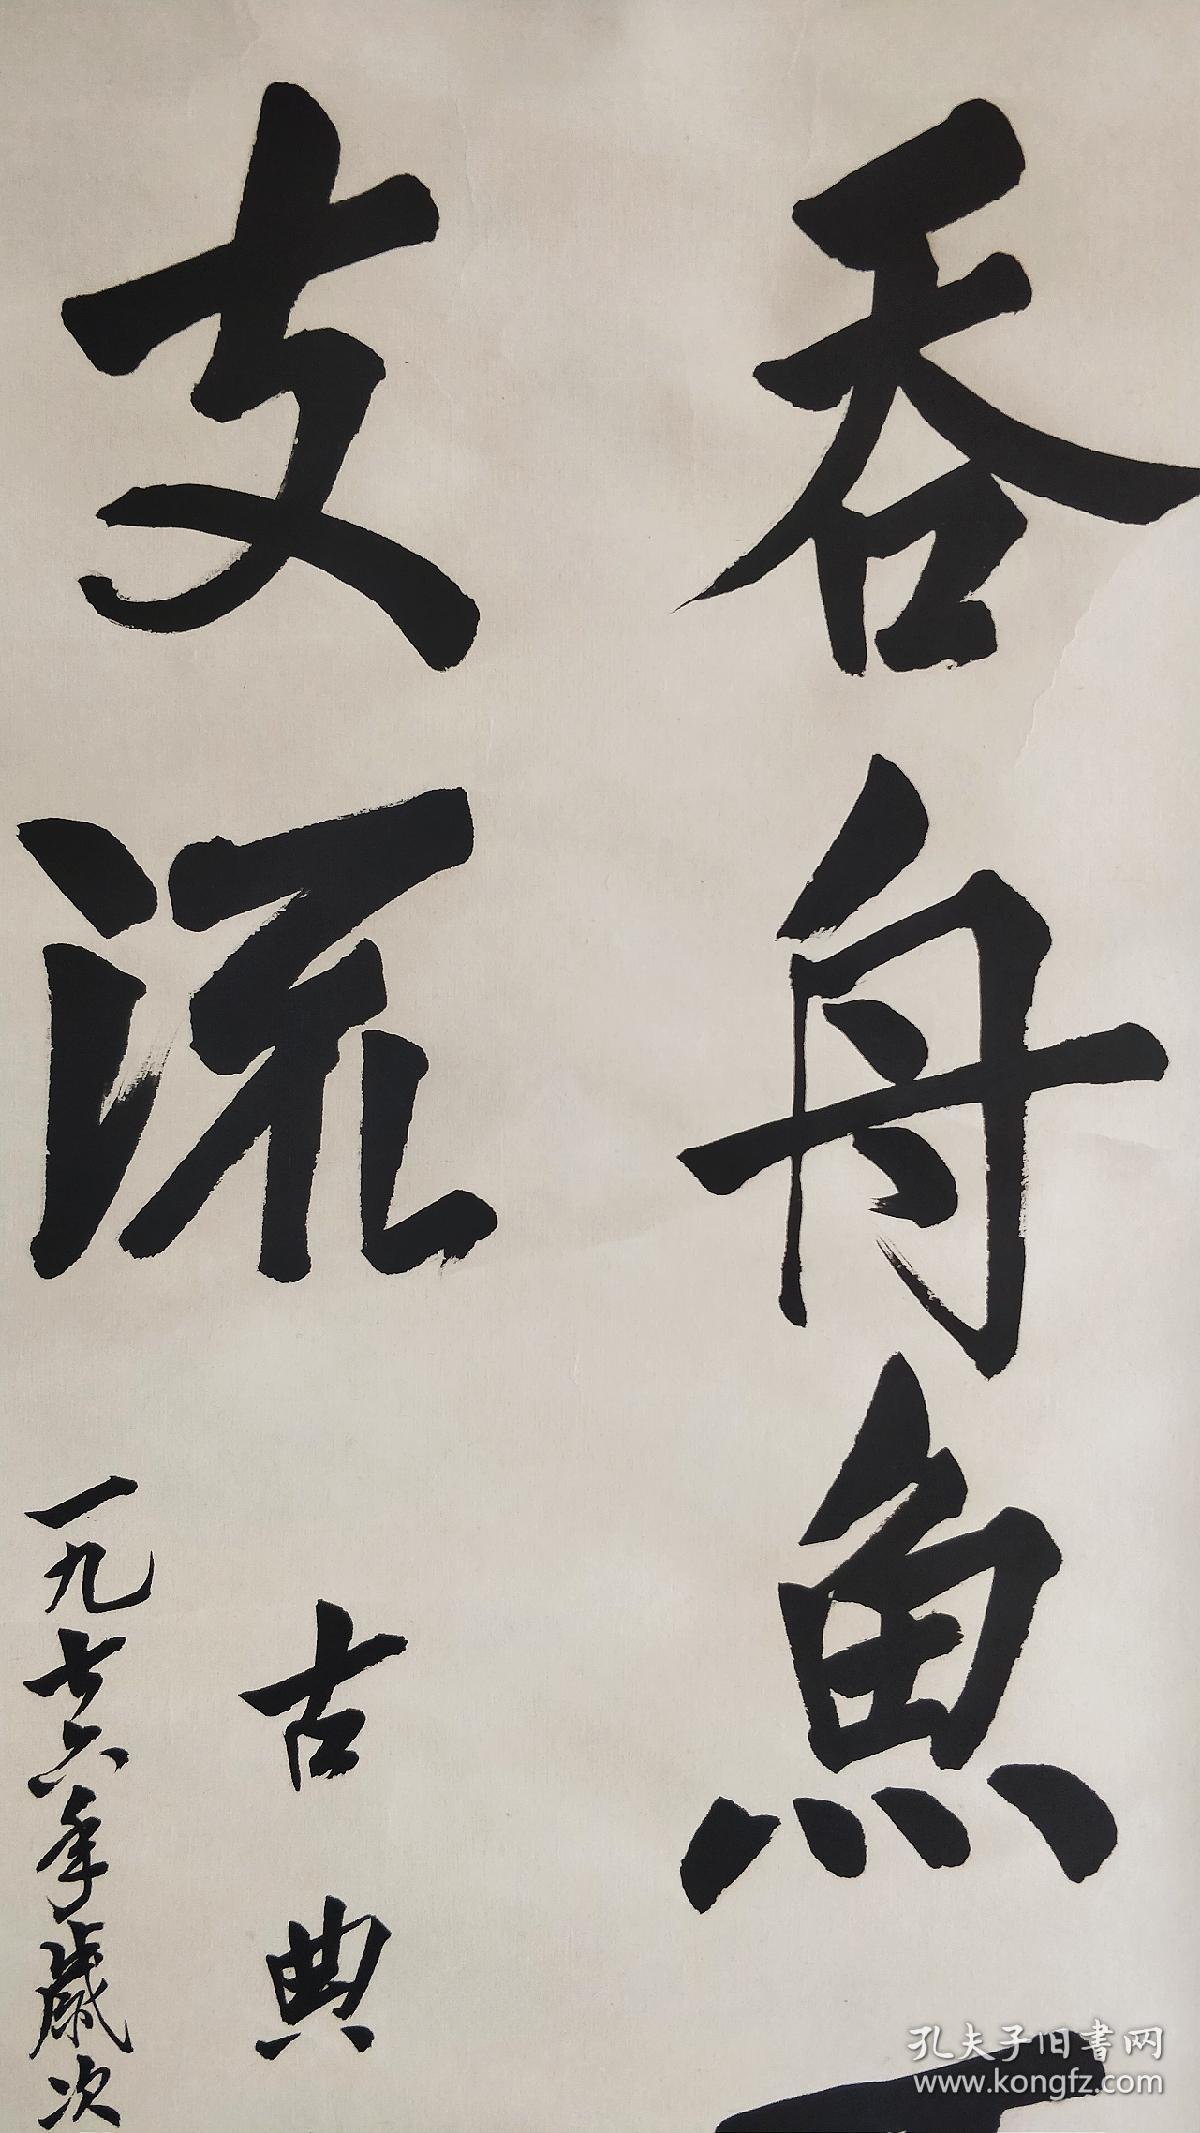 吞舟魚不
支流
古典
一九七六年歲次
孔夫子旧書网
www.kongfz.com